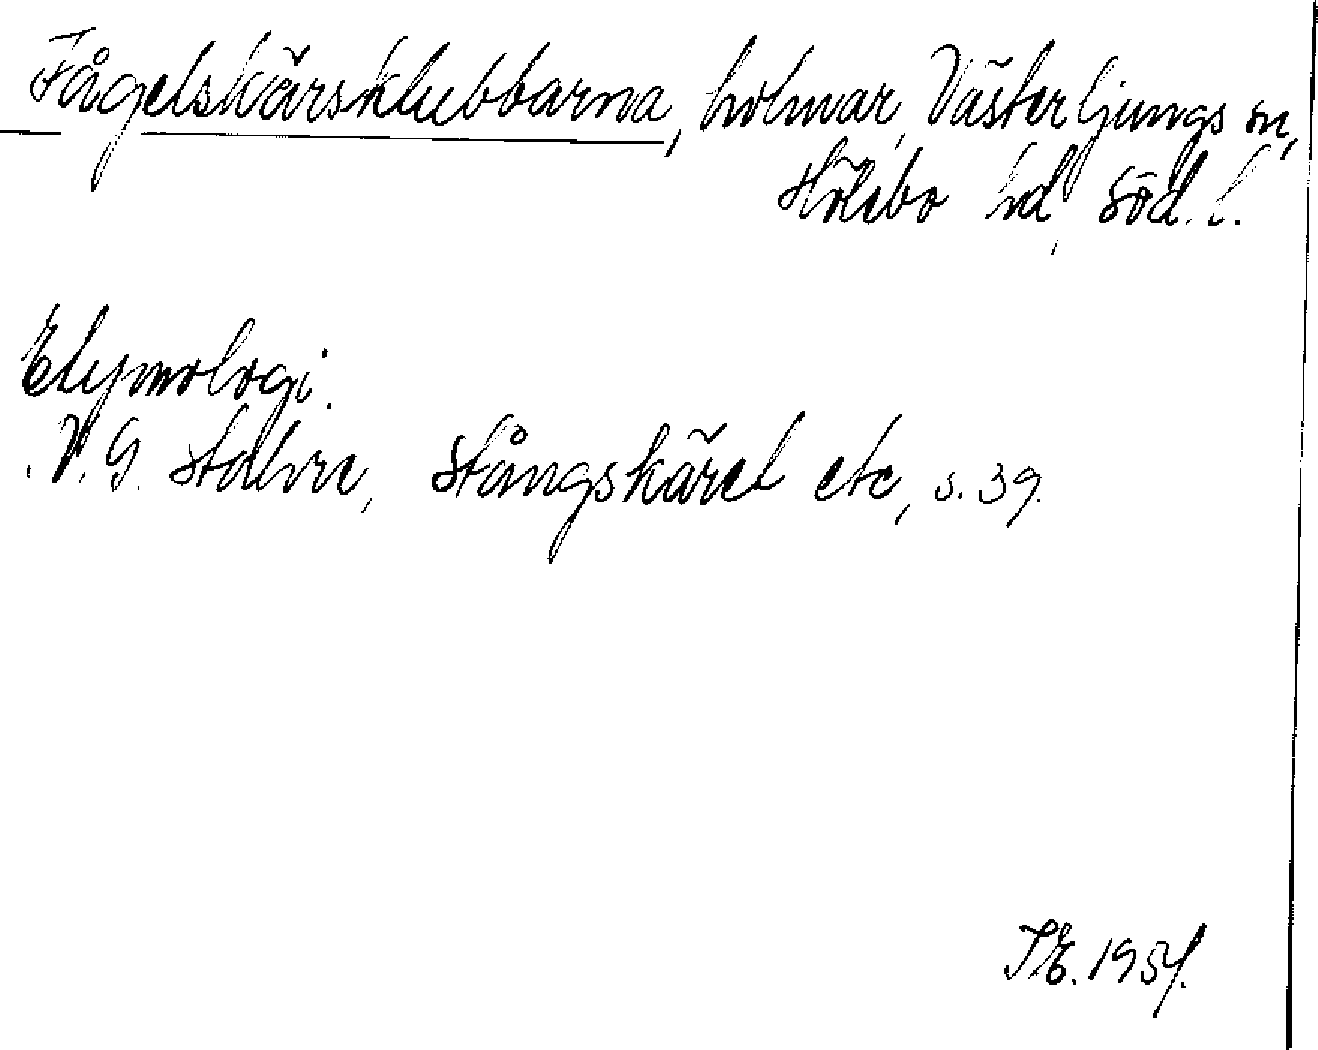 Fågelskärsklubbarna, holmar, Västerljungs sn,
Hölebo hd, Söd. l.
Etymologi.
V. G. Stalvre, Stångskäret etc, s. 39.
1954.